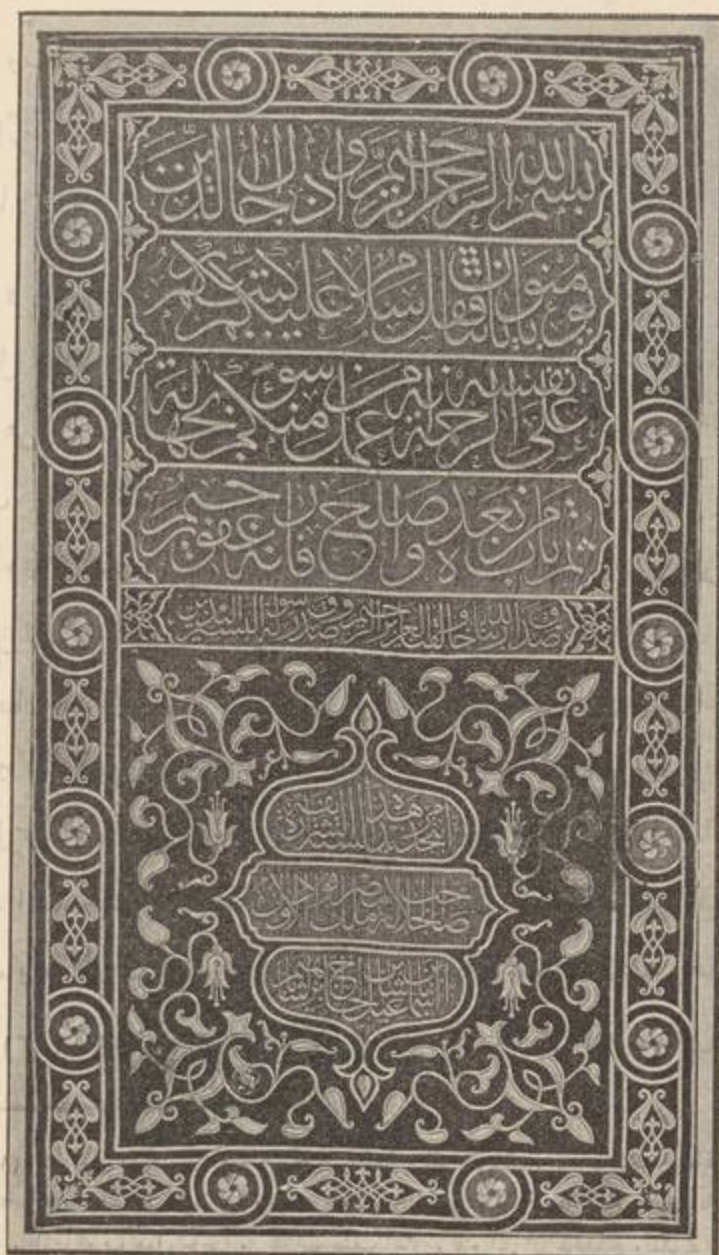 بسم الله الرحمن الرحيم واذا جاءك الذين
يؤمنون بآياتنا فقل سلام عليكم كتب ربكم
على نفسه الرحمة انه من عمل منكم سوءا بجهالة
ثم تاب من بعده واصلح فانه غفور رحيم
صدق الله ربنا خالق وصدق رسوله
امر بتجديد هذه الشريفة
صاحب الجلالة ملك مصر فؤاد الاول